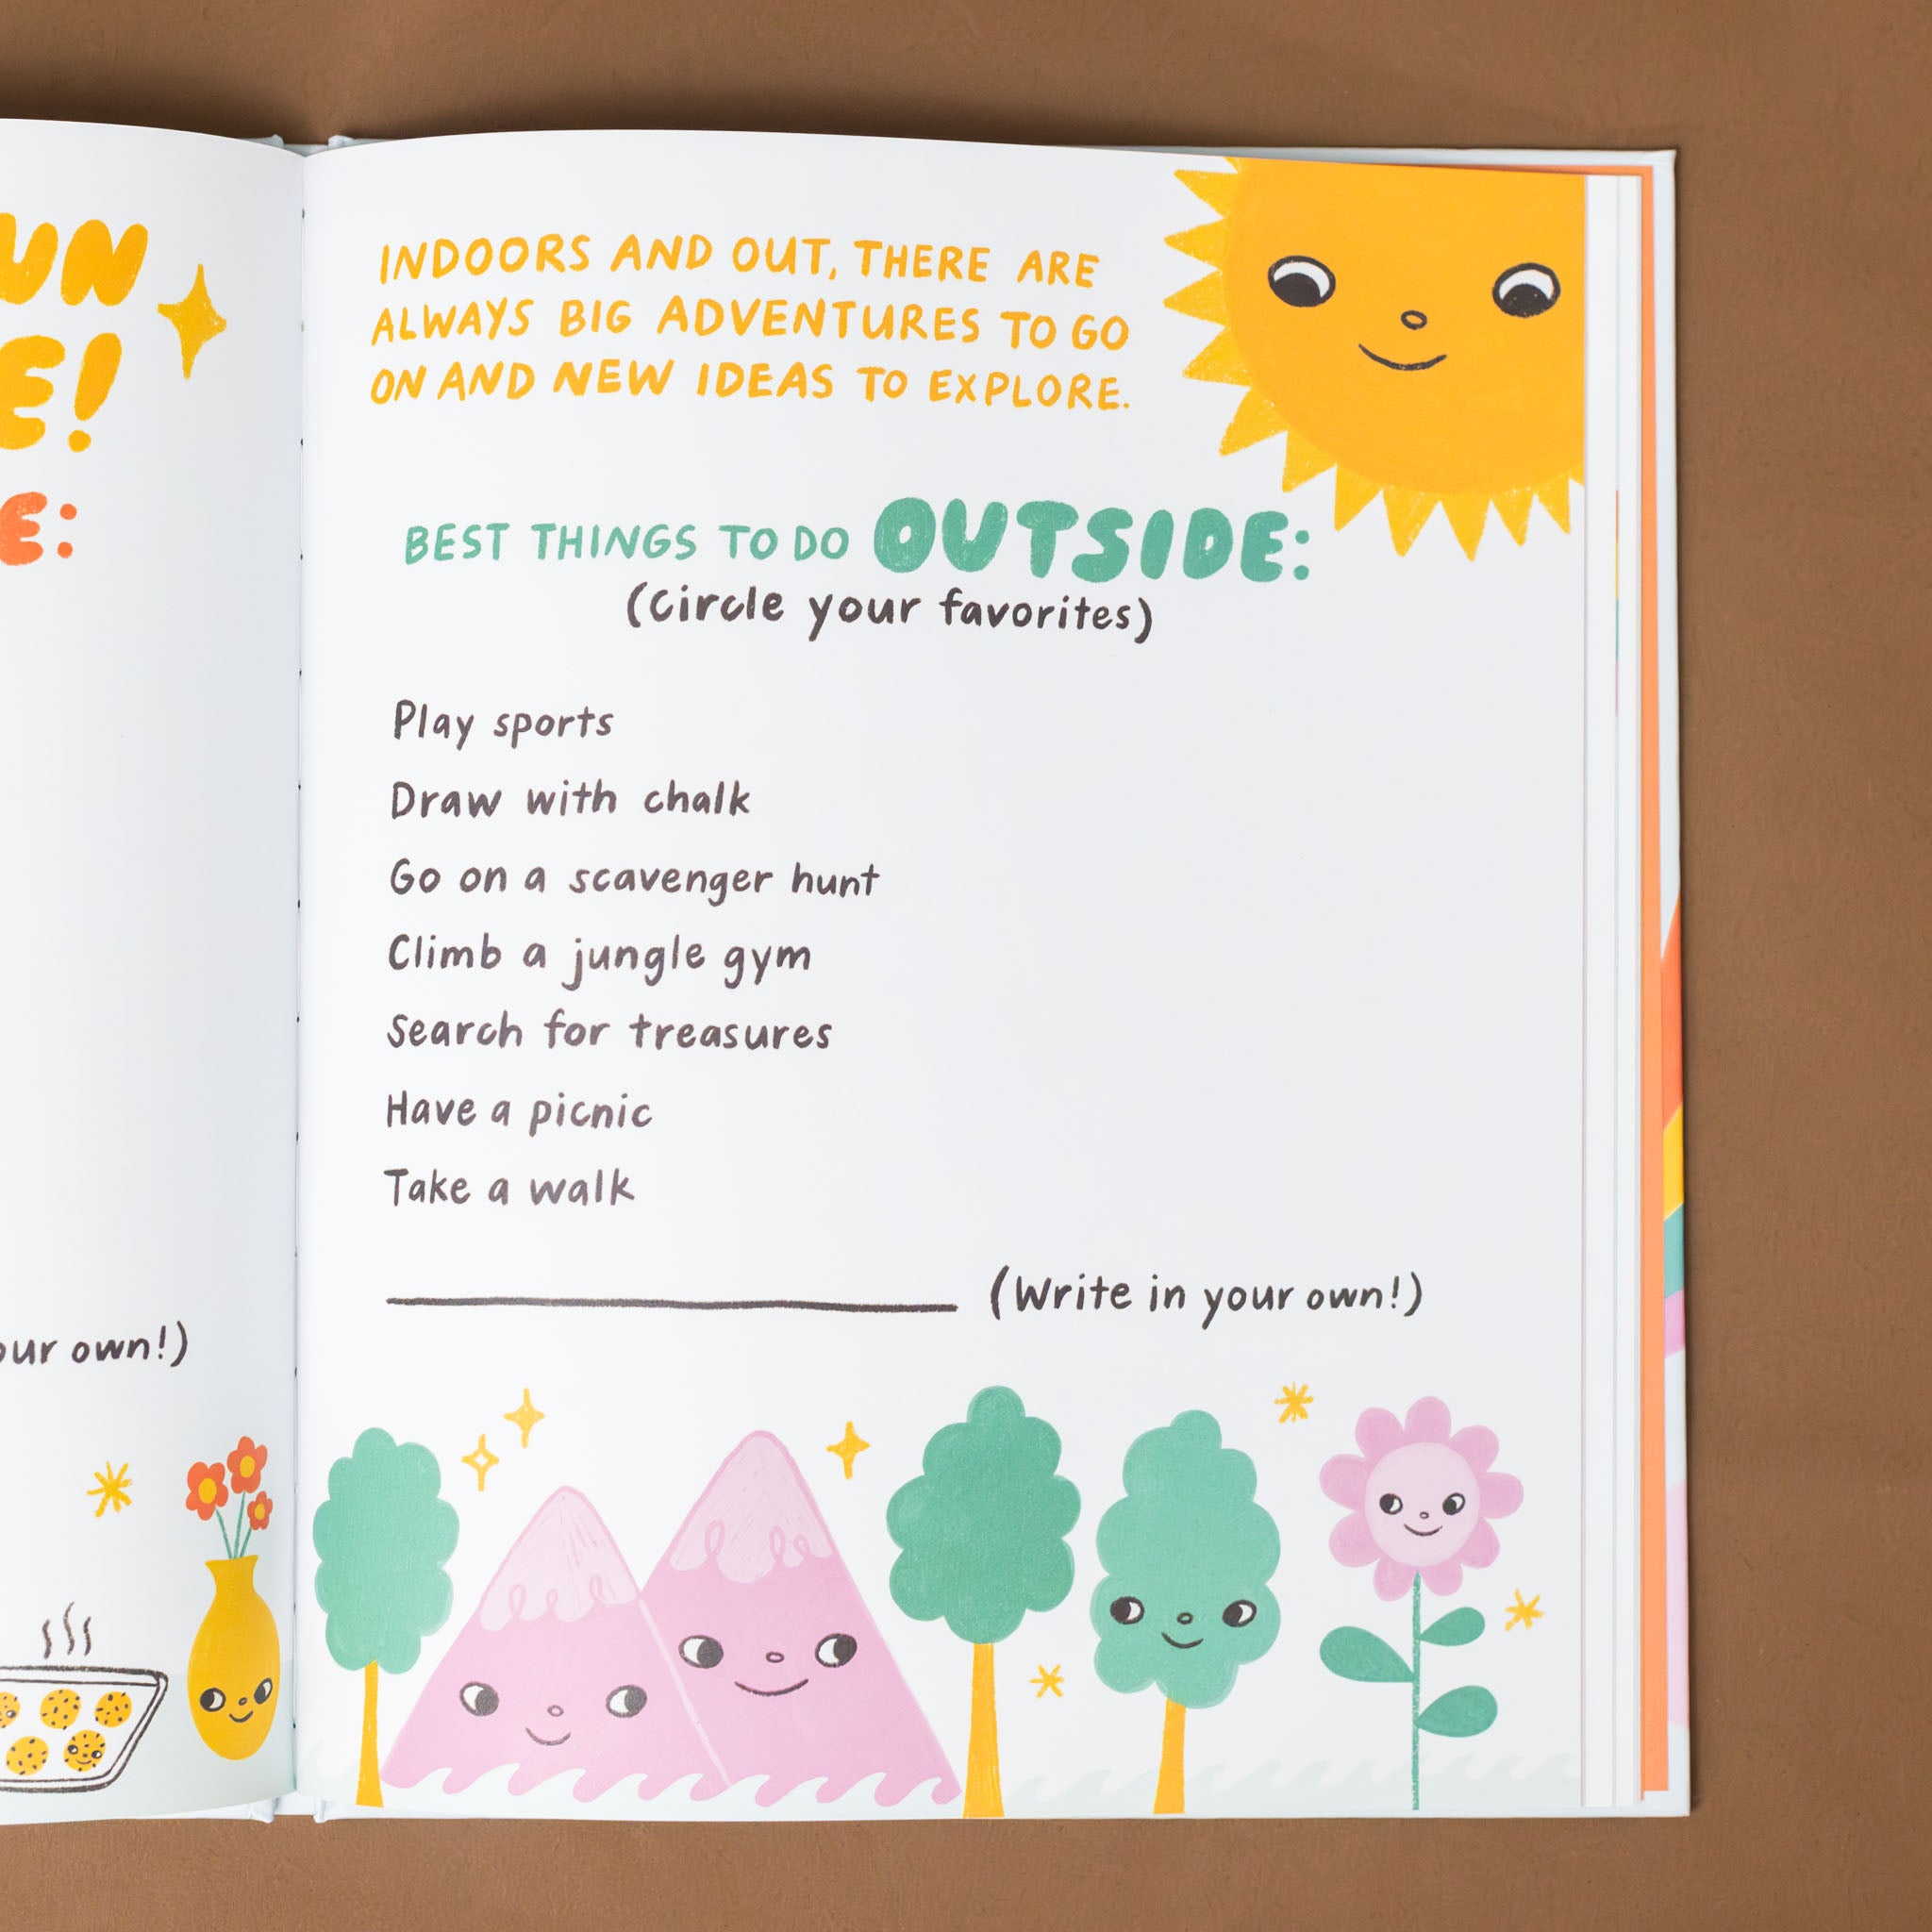 INDOORS AND OUT, THERE ARE
ALWAYS BIG ADVENTURES TO GO
ON AND NEW IDEAS TO EXPLORE.
BEST THINGS TO DO OUTSIDE:
(Circle your favorites)
Play sports
Draw with chalk
Go on a scavenger hunt
Climb a jungle gym
Search for treasures
Have a picnic
Take a walk
(Write in your own!)
own!)